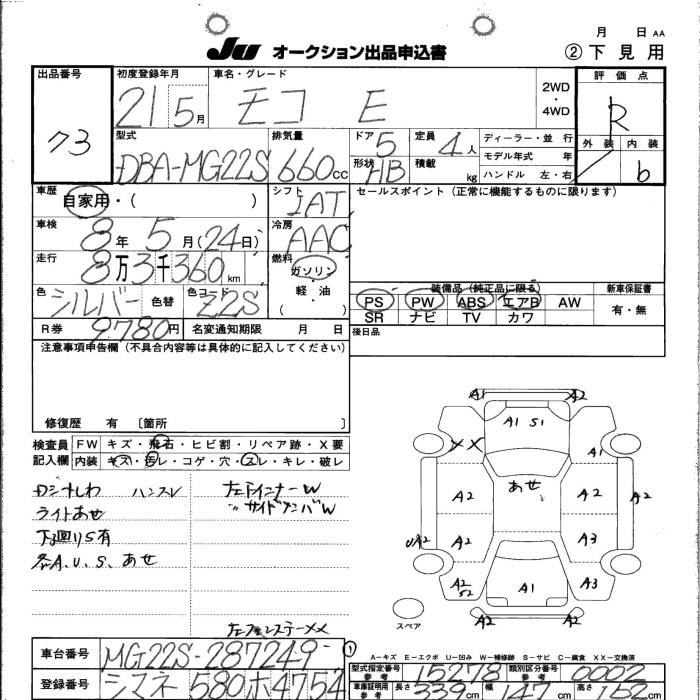 月 日 AA
JU オークション出品申込書 ② 下見用
出品番号 73
初度登録年月 21 5月
車名・グレード モコ E
2WD・4WD
評価点 R
外装 内装 b
型式 DBA-MG22S
排気量 660cc
ドア 5
形状 HB
定員 4人
積載 kg
ディーラー・並行
モデル年式 年
ハンドル 左・右
車歴 自家用・( )
シフト IAT
セールスポイント(正常に機能するものに限ります)
車検 8年 5月(24日)
冷房 AAC
走行 8万3千360km
燃料 ガソリン・軽・油 ( )
色 シルバー 色替 色コード Z2S
装備品(純正品に限る) 新車保証書
PS PW ABS エアB AW 有・無
SR ナビ TV カワ
R券 9780円 名変通知期限 月 日
後日品
注意事項申告欄(不具合内容等は具体的に記入してください)
修復歴 有 〔箇所 〕
検査員記入欄
FW キズ・飛石・ヒビ割・リペア跡・X要
内装 キズ・汚レ・コゲ・穴・スレ・キレ・破レ
ライトあせ
下廻りS有
各A、U、S、あせ
A2 A2
A1 S1
XX A1
あせ
A2 A2 A2
A2 A2 A3
A2 S2 A1 A3
A2 A2
スペア
A-キズ E-エクボ U-凹み W-補修跡 S-サビ C-腐食 XX-交換済
車台番号 MG22S-287249
登録番号 シマネ 580 ホ 4754
①
型式指定番号 参考 15278 類別区分番号 参考 0002
車庫証明用 参考 長さ 339cm 幅 147cm 高さ 162cm